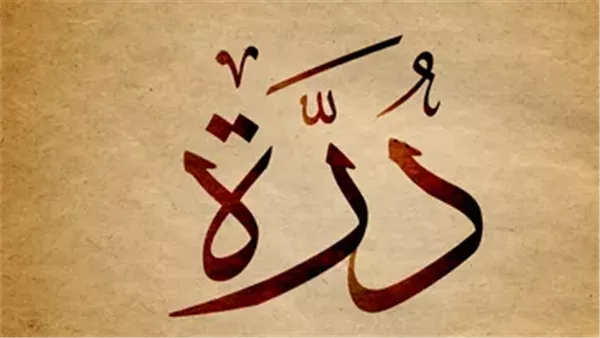 دُرَّة